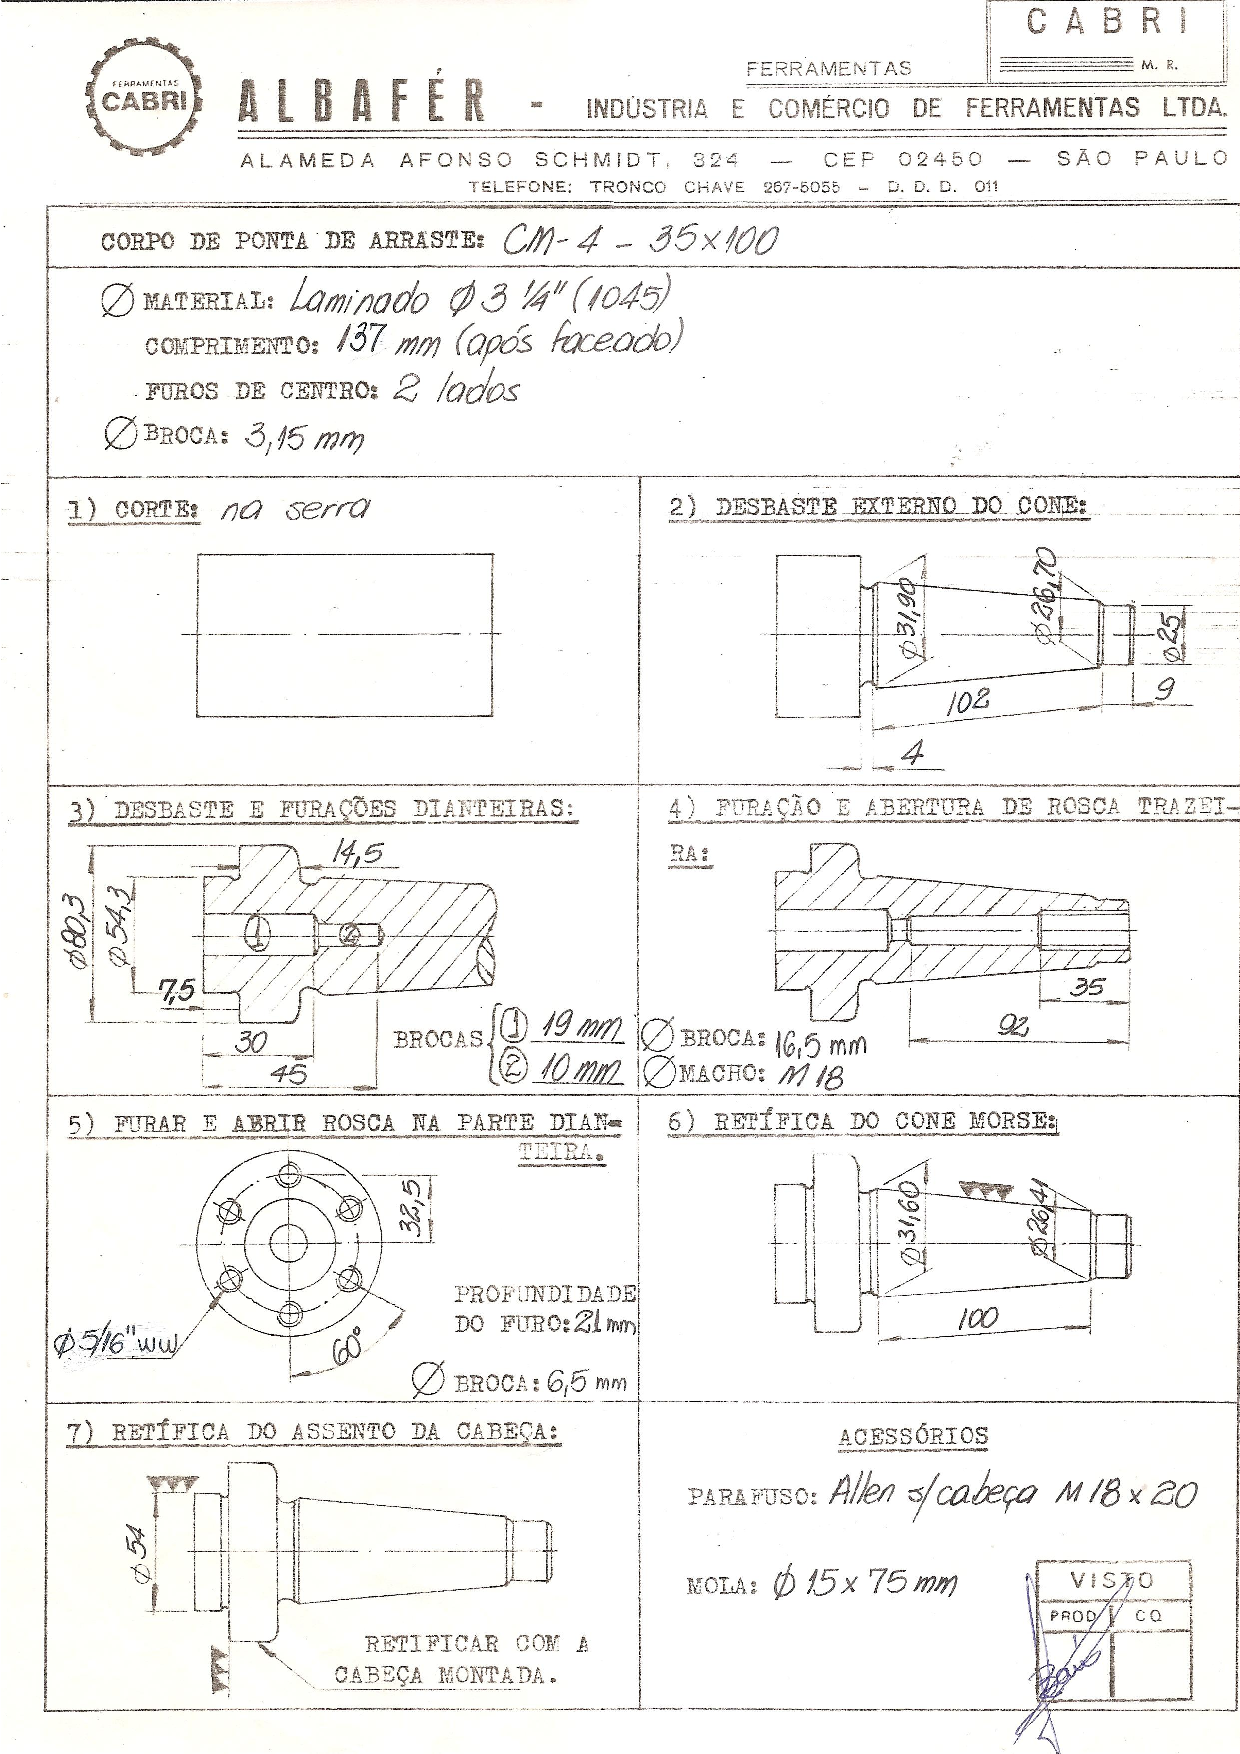 CABRI
M. R.
FERRAMENTAS
FERRAMENTAS
CABRI
ALBAFÉR - INDÚSTRIA E COMÉRCIO DE FERRAMENTAS LTDA.
ALAMEDA AFONSO SCHMIDT, 324 — CEP 02450 — SÃO PAULO
TELEFONE: TRONCO CHAVE 267-5055 - D. D. D. 011
CORPO DE PONTA DE ARRASTE: CM-4 - 35x100
Ø MATERIAL: Laminado Ø 3 1/4" (1045)
COMPRIMENTO: 137 mm (após faceado)
FUROS DE CENTRO: 2 lados
Ø BROCA: 3,15 mm
1) CORTE: na serra
2) DESBASTE EXTERNO DO CONE:
Ø31,90
Ø26,70
Ø25
102
9
4
3) DESBASTE E FURAÇÕES DIANTEIRAS:
14,5
Ø80,3
Ø54,3
1
2
7,5
30
45
BROCAS
1 19 mm
2 10 mm
4) FURAÇÃO E ABERTURA DE ROSCA TRAZEI-
RA:
35
92
Ø BROCA: 16,5 mm
Ø MACHO: M 18
5) FURAR E ABRIR ROSCA NA PARTE DIAN-
TEIRA.
32,5
60°
Ø 5/16" WW
PROFUNDIDADE
DO FURO: 21 mm
Ø BROCA: 6,5 mm
6) RETÍFICA DO CONE MORSE:
Ø31,60
Ø26,41
100
7) RETÍFICA DO ASSENTO DA CABEÇA:
Ø54
RETIFICAR COM A
CABEÇA MONTADA.
ACESSÓRIOS
PARAFUSO: Allen s/cabeça M 18 x 20
MOLA: Ø 15 x 75 mm
VISTO
PROD CQ